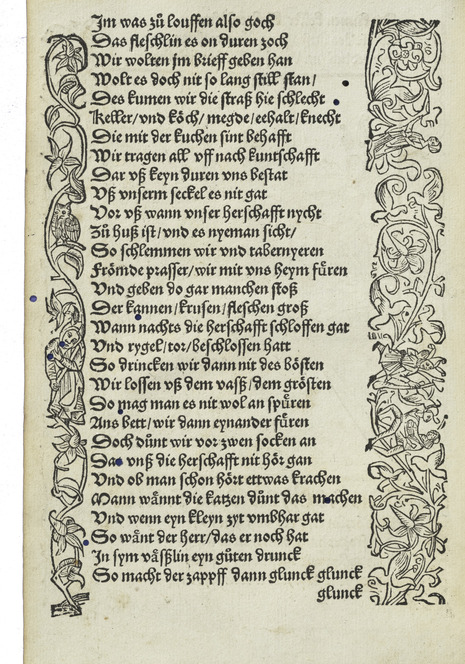 Im was zů louffen also goch
Das fleschlin es on duren zoch
Wir wolten jm brieff geben han
Wolt es doch nit so lang still stan/
Des kumen wir die straß hie schlecht
Keller/vnd köch/megde/eehalt/knecht
Die mit der kuchen sint behafft
Wir tragen all vff nach kuntschafft
Dar vß keyn duren vns bestat
Vß vnserm seckel es nit gat
Vor vß wann vnser herschafft nycht
Zů huß ist/vnd es nyeman sicht/
So schlemmen wir vnd tabernyeren
Frömde prasser/wir mit vns heym fůren
Vnd geben do gar manchen stoß
Der kannen/krusen/fleschen groß
Wann nachts die herschafft schloffen gat
Vnd rygel/tor/beschlossen hatt
So drincken wir dann nit des bösten
Wir lossen vß dem vasß/dem grösten
So mag man es nit wol an spůren
Ans bett/wir dann eynander fůren
Doch důnt wir vor zwen socken an
Das vnß die herschafft nit hör gan
Vnd ob man schon hört ettwas krachen
Mann wånnt die katzen důnt das machen
Vnd wenn eyn kleyn zyt vmbhar gat
So wånt der herr/das er noch hat
In sym våßlin eyn gůten drunck
So macht der zappff dann glunck glunck
glunck